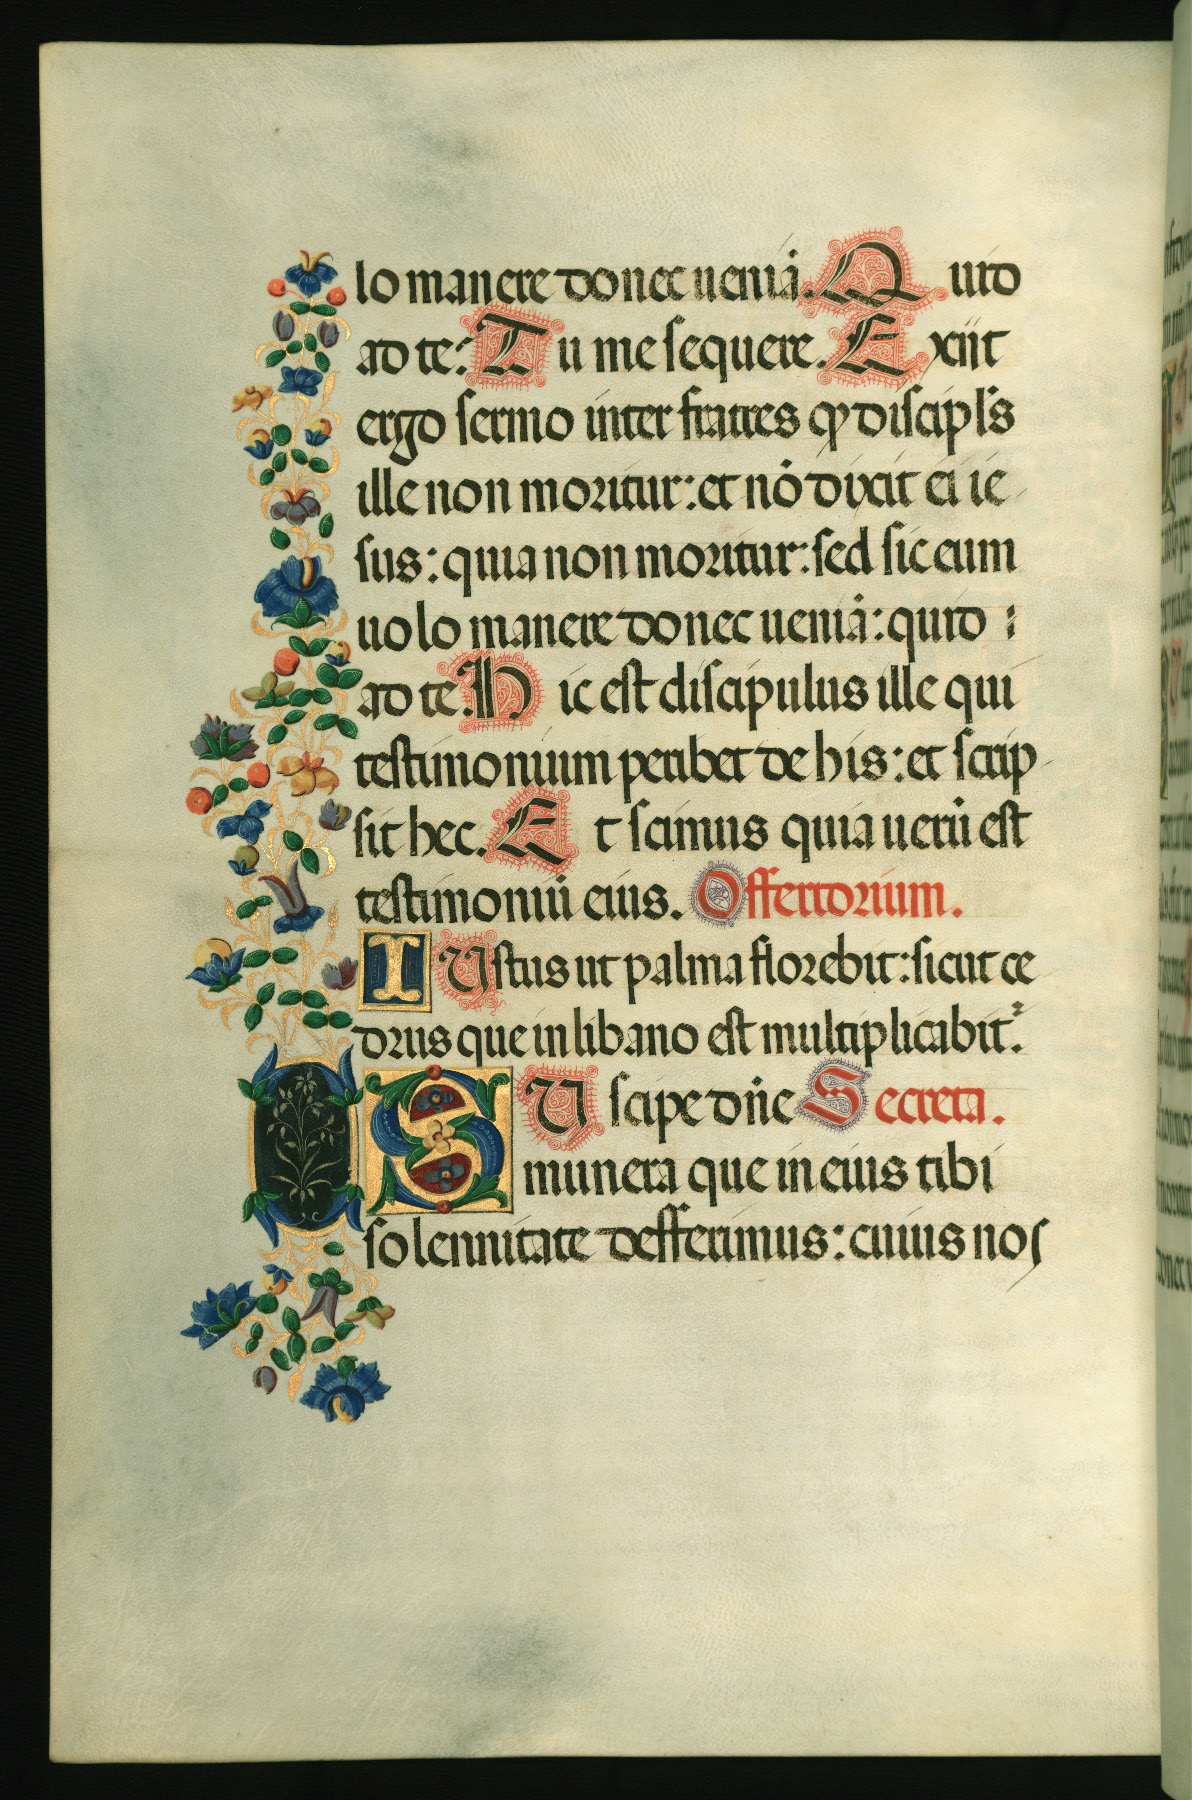 lo manere donec ueniā. Quid
ad te? Tu me sequere. Exiit
ergo sermo inter fratres qꝙ discipl's
ille non moritur: et nō dixit ei ie
sus: quia non moritur: sed sic eum
uolo manere donec ueniā: quid
ad te. Hic est discipulus ille qui
testimonium peribet de his: et scrip
sit hec. Et scimus quia uerū est
testimoniū eius. Offertorium.
IUstus ut palma florebit: sicut ce
drus que in libano est multiplicabit᷑.
SUscipe dn̄e Secreta.
munera que in eius tibi
solennitate defferimus: cuius nos